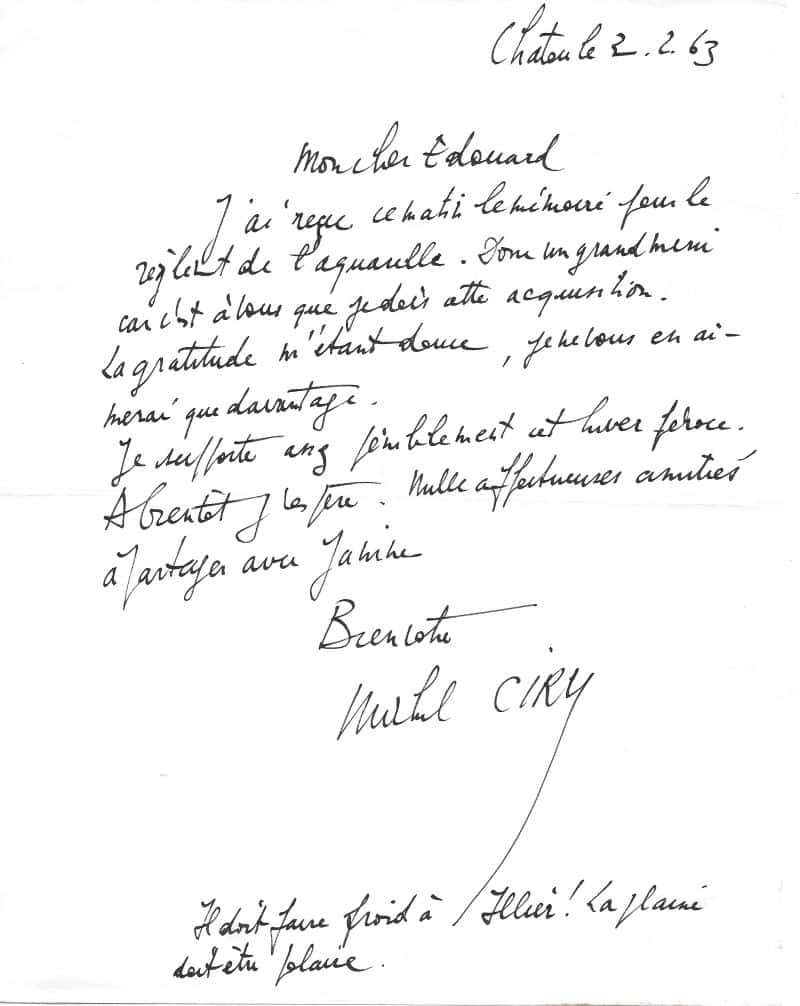 Chatou le 2.2.63
Mon cher Edouard
J'ai reçu ce matin le mémoire pour le
de l'aquarelle. Donc un grand merci
car c'est à vous que je dois cette acquisition.
La gratitude m'étant douce, je ne vous en ai-
merai que davantage.
Je supporte assez péniblement cet hiver féroce.
A bientôt j'espère. Mille affectueuses amitiés
à partager avec Janine
Bien votre
Michel CIRY
Il doit faire froid à Illier! La plaine
doit être